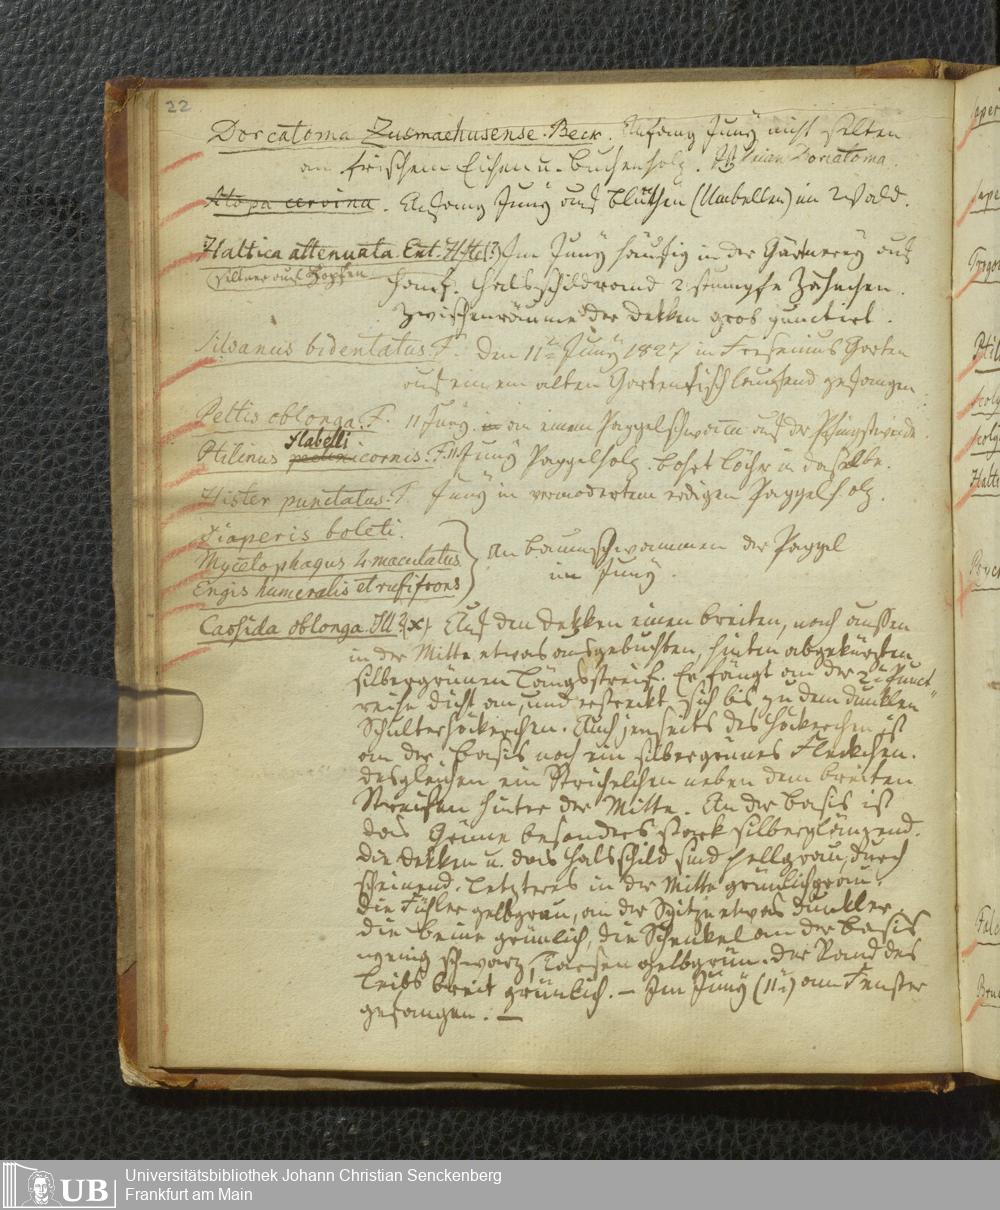 22
Dorcatoma Zusmaehusense. Beck. Anfang Juny nicht selten
an frischem Eichen u. Buchenholz. Ist kein Dorcatoma.
Atopa cervina. Anfang Juny auf Blüthen (Umbellen) im Wald.
Haltica attenuata. Ent. Hfte (?) Im Juny häufig in der Gärtnerey auf
(seltner auf Hopfen
Hanf. Halsschildrand 2 stumpfe Zähnchen.
Zwischenräume der Decken grob punctirt.
Silvanus bidentatus. F. Den 11t Juny 1827 in Fresenius Garten
auf einem alten Gartentisch laufend gefangen
Peltis oblonga. F. 11 Juny. an einem Pappelschwamm auf der Pfingstweide.
flabelli
Ptilinus pectinicornis. F. 11 Juny Pappelholz. bohrt Löcher in dasselbe.
Hister punctatus. F. Juny in vermodertem erdigen Pappelholz.
Diaperis boleti.
Mycetophagus 4-maculatus
Engis humeralis et rufifrons
An Baumschwammen der Pappel
im Juny.
Cassida oblonga. Ill? (x) Auf den Decken einen breiten, nach aussen
in der Mitte etwas ausgebuchten, hinten abgekürzten
silbergrünen Längsstreif. Er fängt an der 2n Punct
reihe dicht an, und erstreckt sich bis zu dem dunklen
Schulterhöckerchen. Auch jenseits des Höckerchen ist
an der Basis noch ein silbergrünes Fleckchen.
desgleichen ein Strichelchen neben dem breiten
Streifen hinter der Mitte. An der Basis ist
das Grüne besonders stark silberglänzend.
Die Decken u. das Halsschild sind hellgrau, durch
scheinend. Letzteres in der Mitte grünlichgrau.
Die Fühler gelbgrau, an der Spitze etwas dunkler.
Die Beine grünlich, die Schenkel an der Basis
wenig schwarz, Tarsen gelbgrün. Der Rand des
Leibs breit grünlich. – Im Juny (11n) am Fenster
gefangen. –
UB
Universitätsbibliothek Johann Christian Senckenberg
Frankfurt am Main